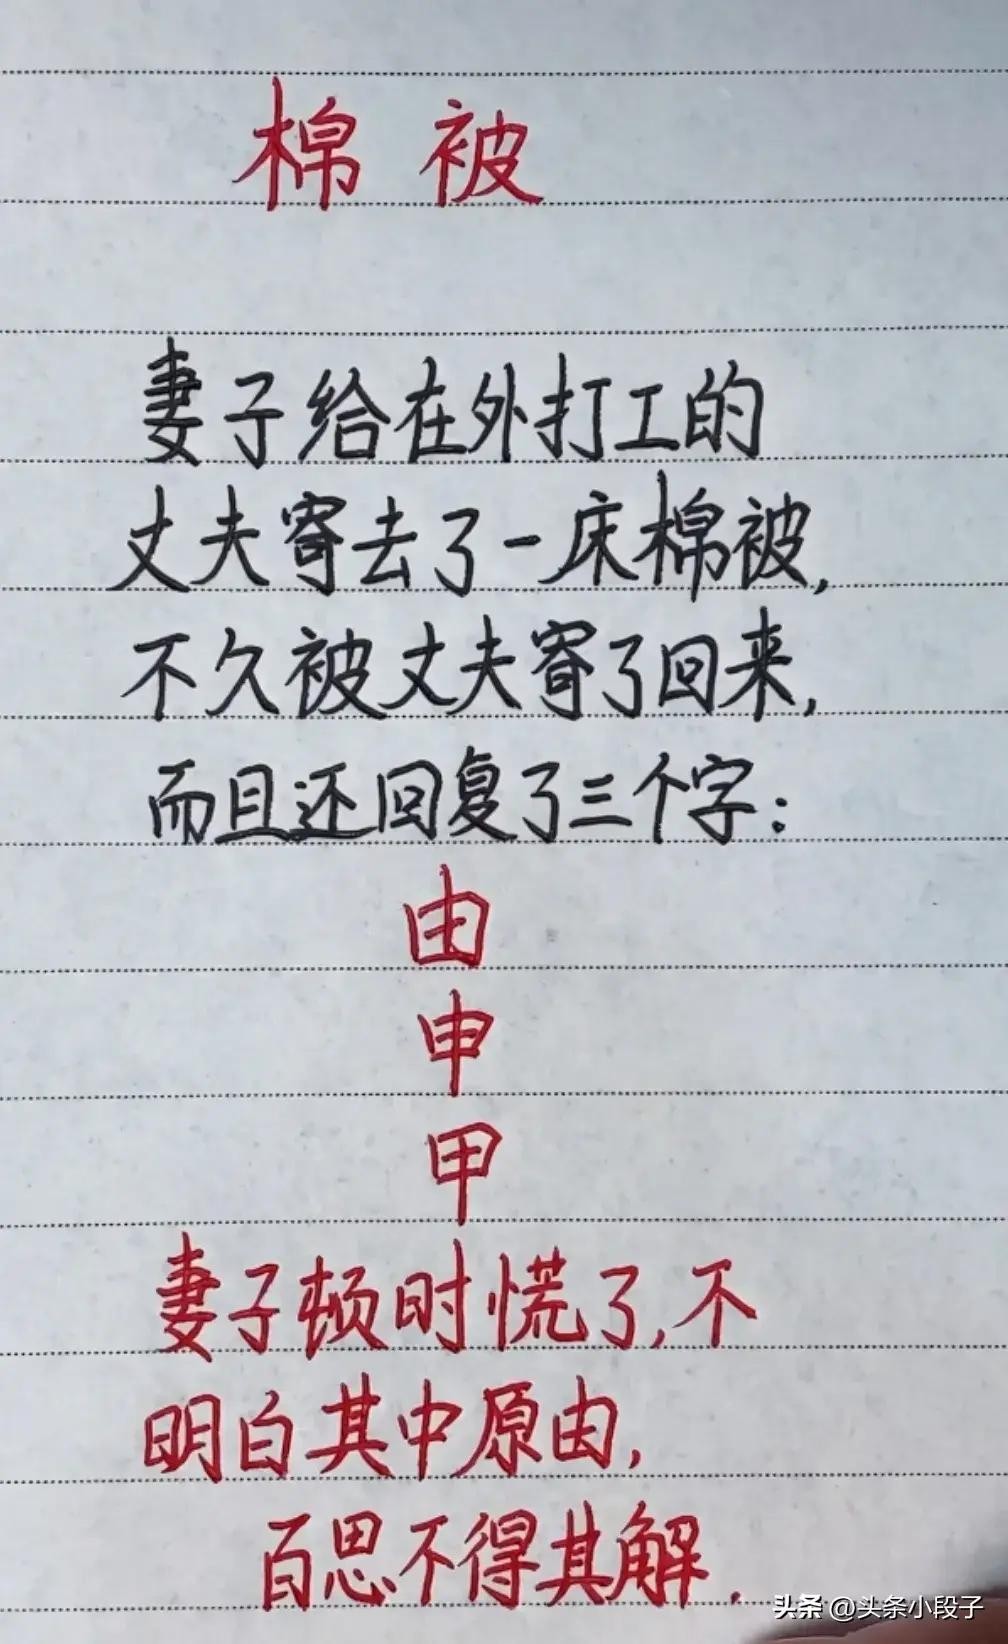 棉被
妻子给在外打工的
丈夫寄去了一床棉被,
不久被丈夫寄了回来,
而且还回复了三个字:
由
申
甲
妻子顿时慌了,不
明白其中原由,
百思不得其解.
头条 @头条小段子